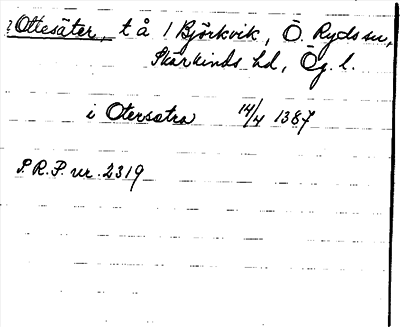 ? Ottesäter, t å 1 Björkvik, Ö. Ryds sn,
Skärkinds hd, Ög. l.
i Otersætra 14/4 1387
S.R.P. nr. 2319